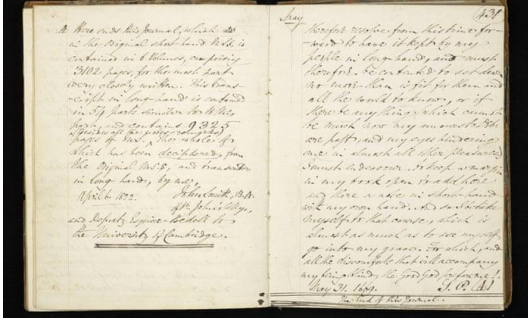 Here ends this Journal, which
in the Original short hand M.S. is
contained in 6 Volumes, comprising
3102 pages, for the most part
very closely written. This trans-
cript in long hand is contained
in 54 parts similar to this
part, and contains 9325
pages of MS.
which has been decyphered, from
the Original M.S.S, and transcribed
in long hand, by me,
April 6. 1822. John Smith,
of St. John's
and Deputy Esquire-Bedell to
the University of Cambridge.
May
therefore resolve, from this time for-
ward to have it kept by my
people in long hand, and must
therefore be contented to set down
no more than is fit for them and
all the world to know; or if
there be any thing, which cannot
be much now my amours to Deb.
are past, and my eyes hindering
me in almost all other pleasures,
I must endeavour to keep a margin
in my book open to add here
and there a note in short hand
with my own hand. And so I betake
myself to that course, which is
almost as much as to see myself
go into my grave: for which, and
all the discomforts that will accompany
my being blind, the Good God prepare me!
May 31. 1669. S. P.
The End of this Journal.